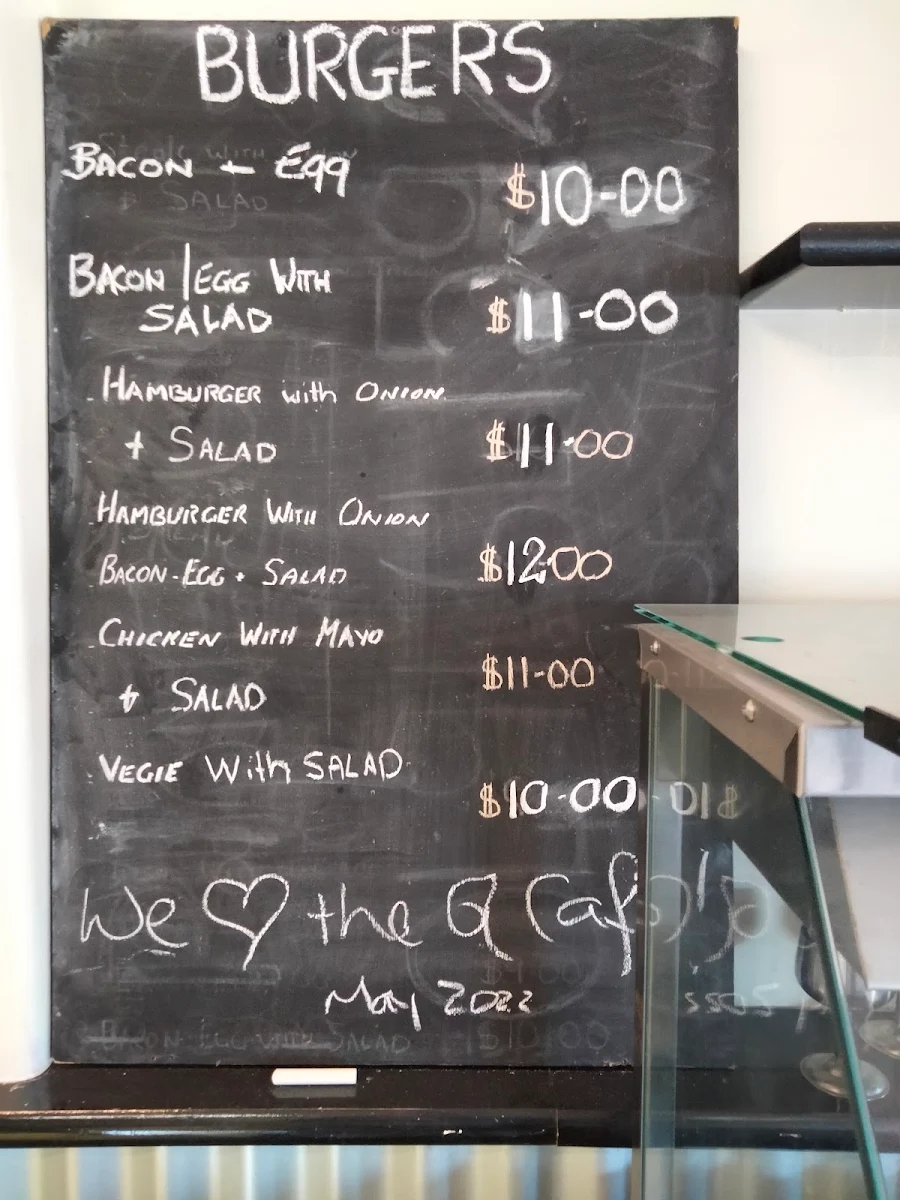 BURGERS
BACON - Egg $10-00
BACON | EGG WITH
SALAD $11-00
HAMBURGER with ONION
+ SALAD $11-00
HAMBURGER WITH ONION
BACON-EGG + SALAD $12.00
CHICKEN WITH MAYO
+ SALAD $11-00
VEGIE With SALAD
$10-00
We ♡ the Q Cafe
May 2022
BACON EGG WITH SALAD $10.00